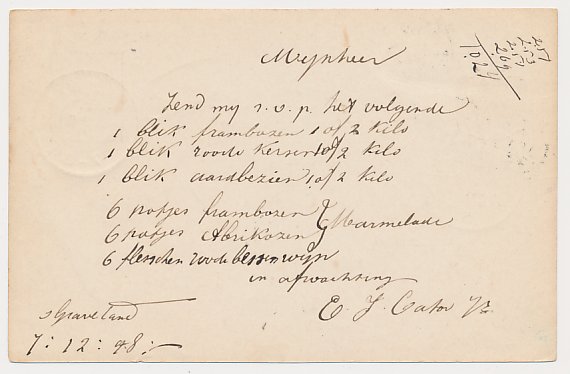 Mijnheer
Zend mij s. v. p. het volgende
1 blik frambozen 1 of 2 Kilo
1 blik roode Kersen 1 of 2 Kilo
1 blik aardbezien 1 of 2 Kilo
6 potjes frambozen } Marmelade
6 potjes Abrikozen
6 flesschen roode bessenwijn
in afwachting
E. J. Cator
s Graveland
7 : 12 : 98 :